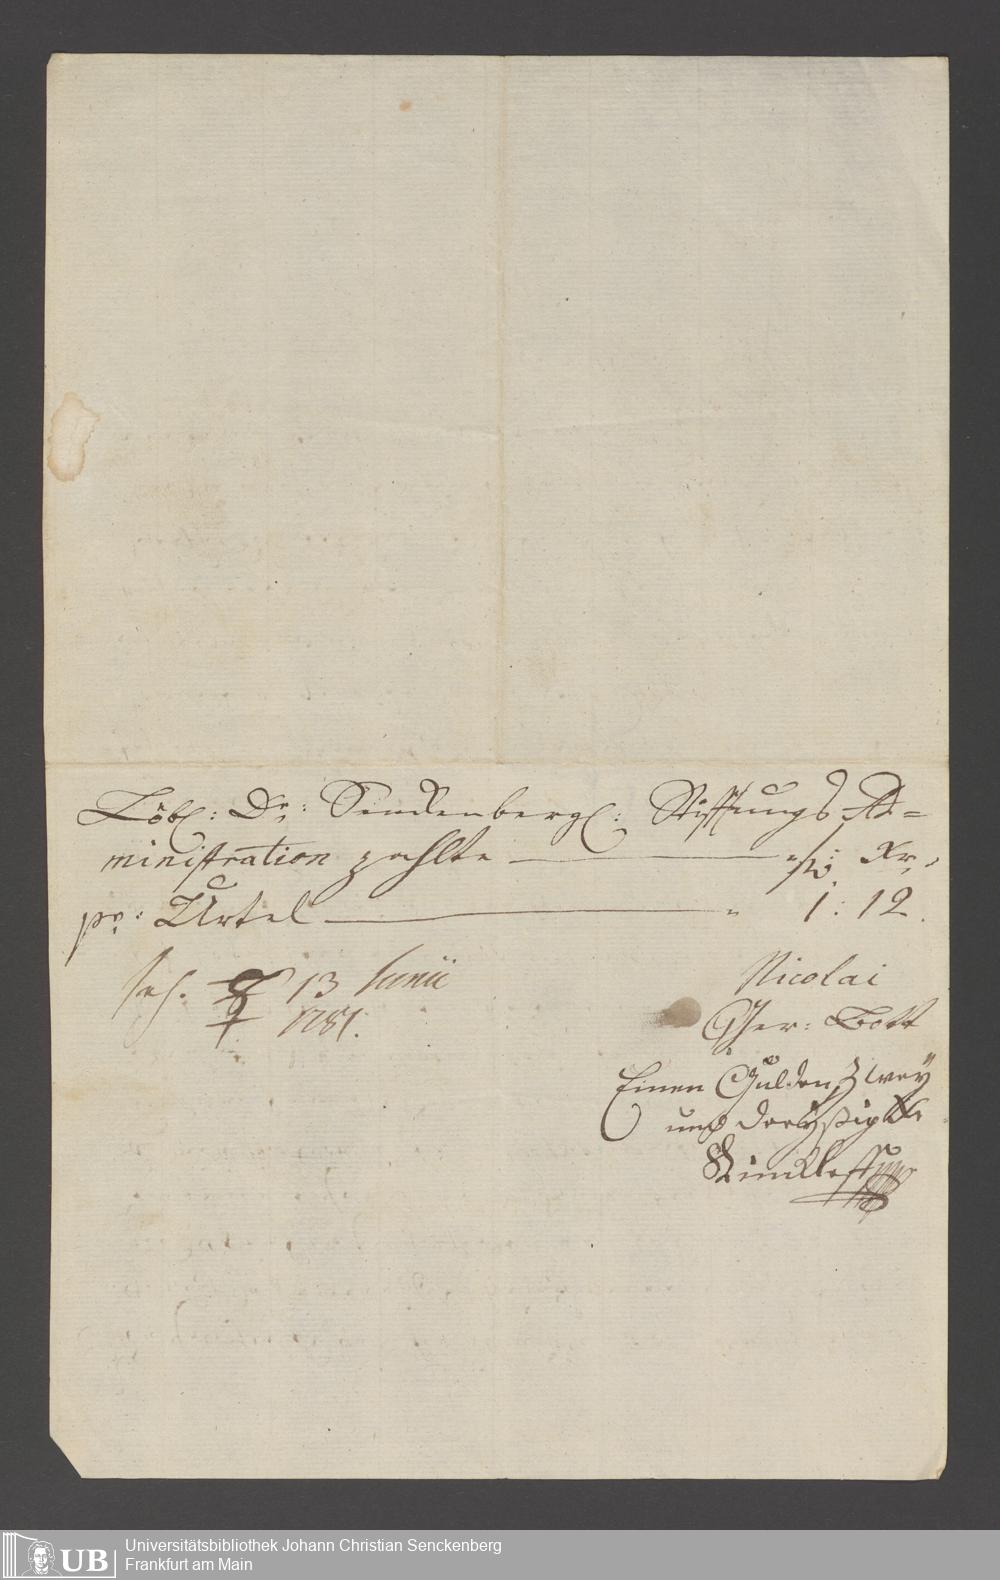 Löbl: Dr: Senckenbergl: Stifftungs Ad=
ministration zahlte — fl: Xr,
pr: Urtel — " 1: 12.
13 Junii
1781.
Nicolai
Ger: Bott
Einen Gulden Zwey
und dreyßig Xr
Universitätsbibliothek Johann Christian Senckenberg
Frankfurt am Main
UB